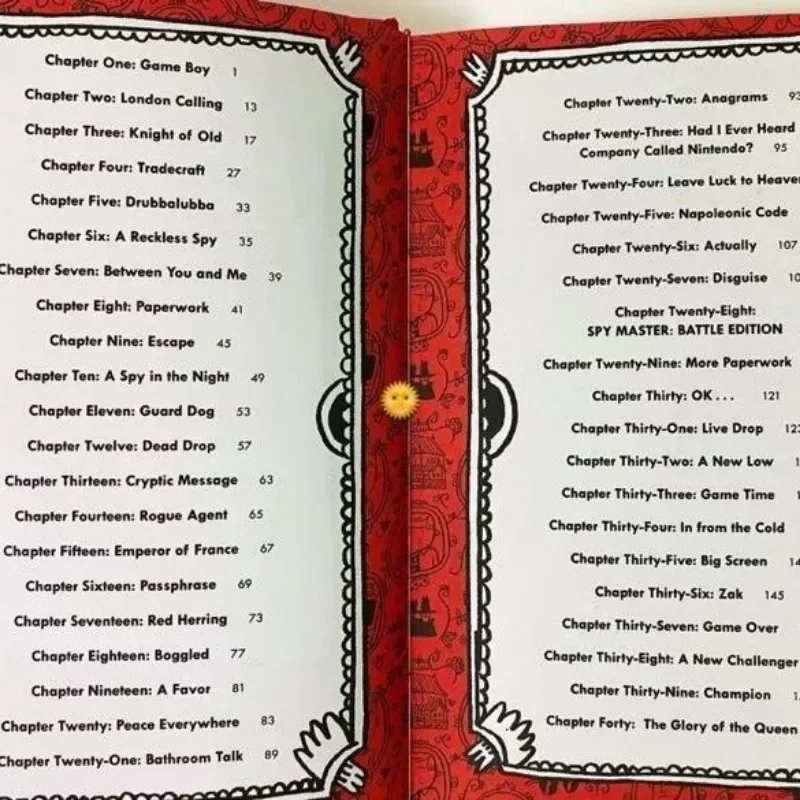 Chapter One: Game Boy 1
Chapter Two: London Calling 13
Chapter Three: Knight of Old 17
Chapter Four: Tradecraft 27
Chapter Five: Drubbalubba 33
Chapter Six: A Reckless Spy 35
Chapter Seven: Between You and Me 39
Chapter Eight: Paperwork 41
Chapter Nine: Escape 45
Chapter Ten: A Spy in the Night 49
Chapter Eleven: Guard Dog 53
Chapter Twelve: Dead Drop 57
Chapter Thirteen: Cryptic Message 63
Chapter Fourteen: Rogue Agent 65
Chapter Fifteen: Emperor of France 67
Chapter Sixteen: Passphrase 69
Chapter Seventeen: Red Herring 73
Chapter Eighteen: Boggled 77
Chapter Nineteen: A Favor 81
Chapter Twenty: Peace Everywhere 83
Chapter Twenty-One: Bathroom Talk 89
Chapter Twenty-Two: Anagrams 93
Chapter Twenty-Three: Had I Ever Heard
Company Called Nintendo? 95
Chapter Twenty-Four: Leave Luck to Heaven
Chapter Twenty-Five: Napoleonic Code
Chapter Twenty-Six: Actually 107
Chapter Twenty-Seven: Disguise
Chapter Twenty-Eight:
SPY MASTER: BATTLE EDITION
Chapter Twenty-Nine: More Paperwork
Chapter Thirty: OK... 121
Chapter Thirty-One: Live Drop 123
Chapter Thirty-Two: A New Low
Chapter Thirty-Three: Game Time
Chapter Thirty-Four: In from the Cold
Chapter Thirty-Five: Big Screen
Chapter Thirty-Six: Zak 145
Chapter Thirty-Seven: Game Over
Chapter Thirty-Eight: A New Challenger
Chapter Thirty-Nine: Champion
Chapter Forty: The Glory of the Queen